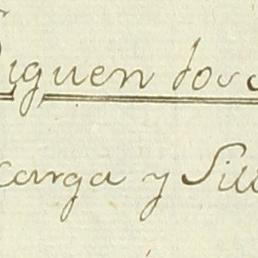 Siguen los
carga y Sill